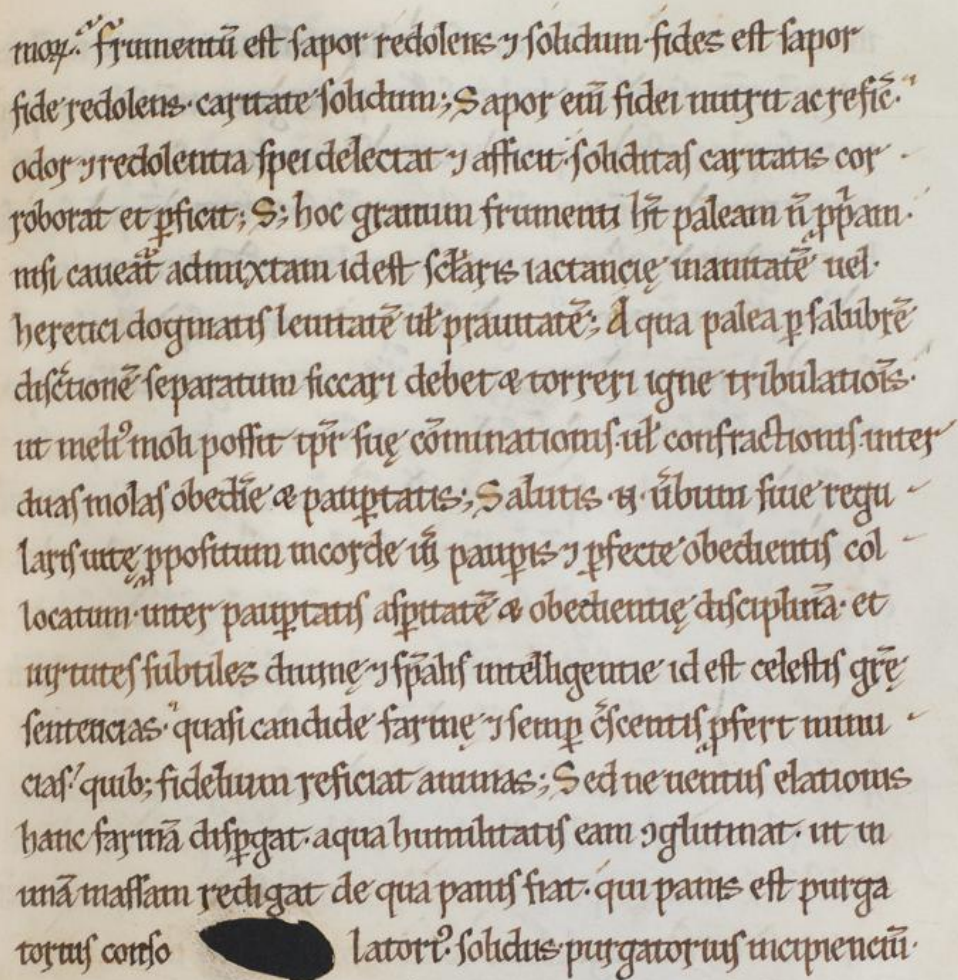 moꝝ. frumentū est sapor redolens ⁊ solidum. fides est sapor
fide redolens. caritate solidum; Sapor eni̅ fidei nutrit ac refic̄.
odor ⁊ redolentia spei delectat ⁊ afficit. soliditas caritatis cor
roborat et ꝑficit; S; hoc granum frumenti ht̄ paleam n̄ pp̄am.
nisi caueat̄ admixtam id est scl̄aris iactancię inanitatē uel
heretici dogmatis leuitatē ul̄ prauitatē; A qua palea ꝑ salubrē
disc̄tionē separatum siccari debet & torreri igne tribulatiōis.
ut meliꝰ moli possit tp̄r suę cōminationis. ul̄ confractionis. inter
duas molas obedīe & pauꝑtatis; Salutis ..n. ūbum siue regu
laris uitę ꝓpositum in corde ūi pauꝑis ⁊ ꝑfecte obedientis col
locatum. inter pauꝑtatis asꝑitatē & obedientię disciplinā. et
uirtutes subtiles diuinę ⁊ sp̄alis intelligentie id est celestis grē
sentencias. quasi candide farinę ⁊ semꝑ c̄scentis ꝓfert minu
cias. quib; fidelium reficiat animas; Sed ne uentus elationis
hanc farinā disꝑgat. aqua humilitatis eam ꝯglutinat. ut in
unā massam redigat de qua panis fiat. qui panis est purga
torius conso latoriꝰ. solidus. purgatorius incipienciū.